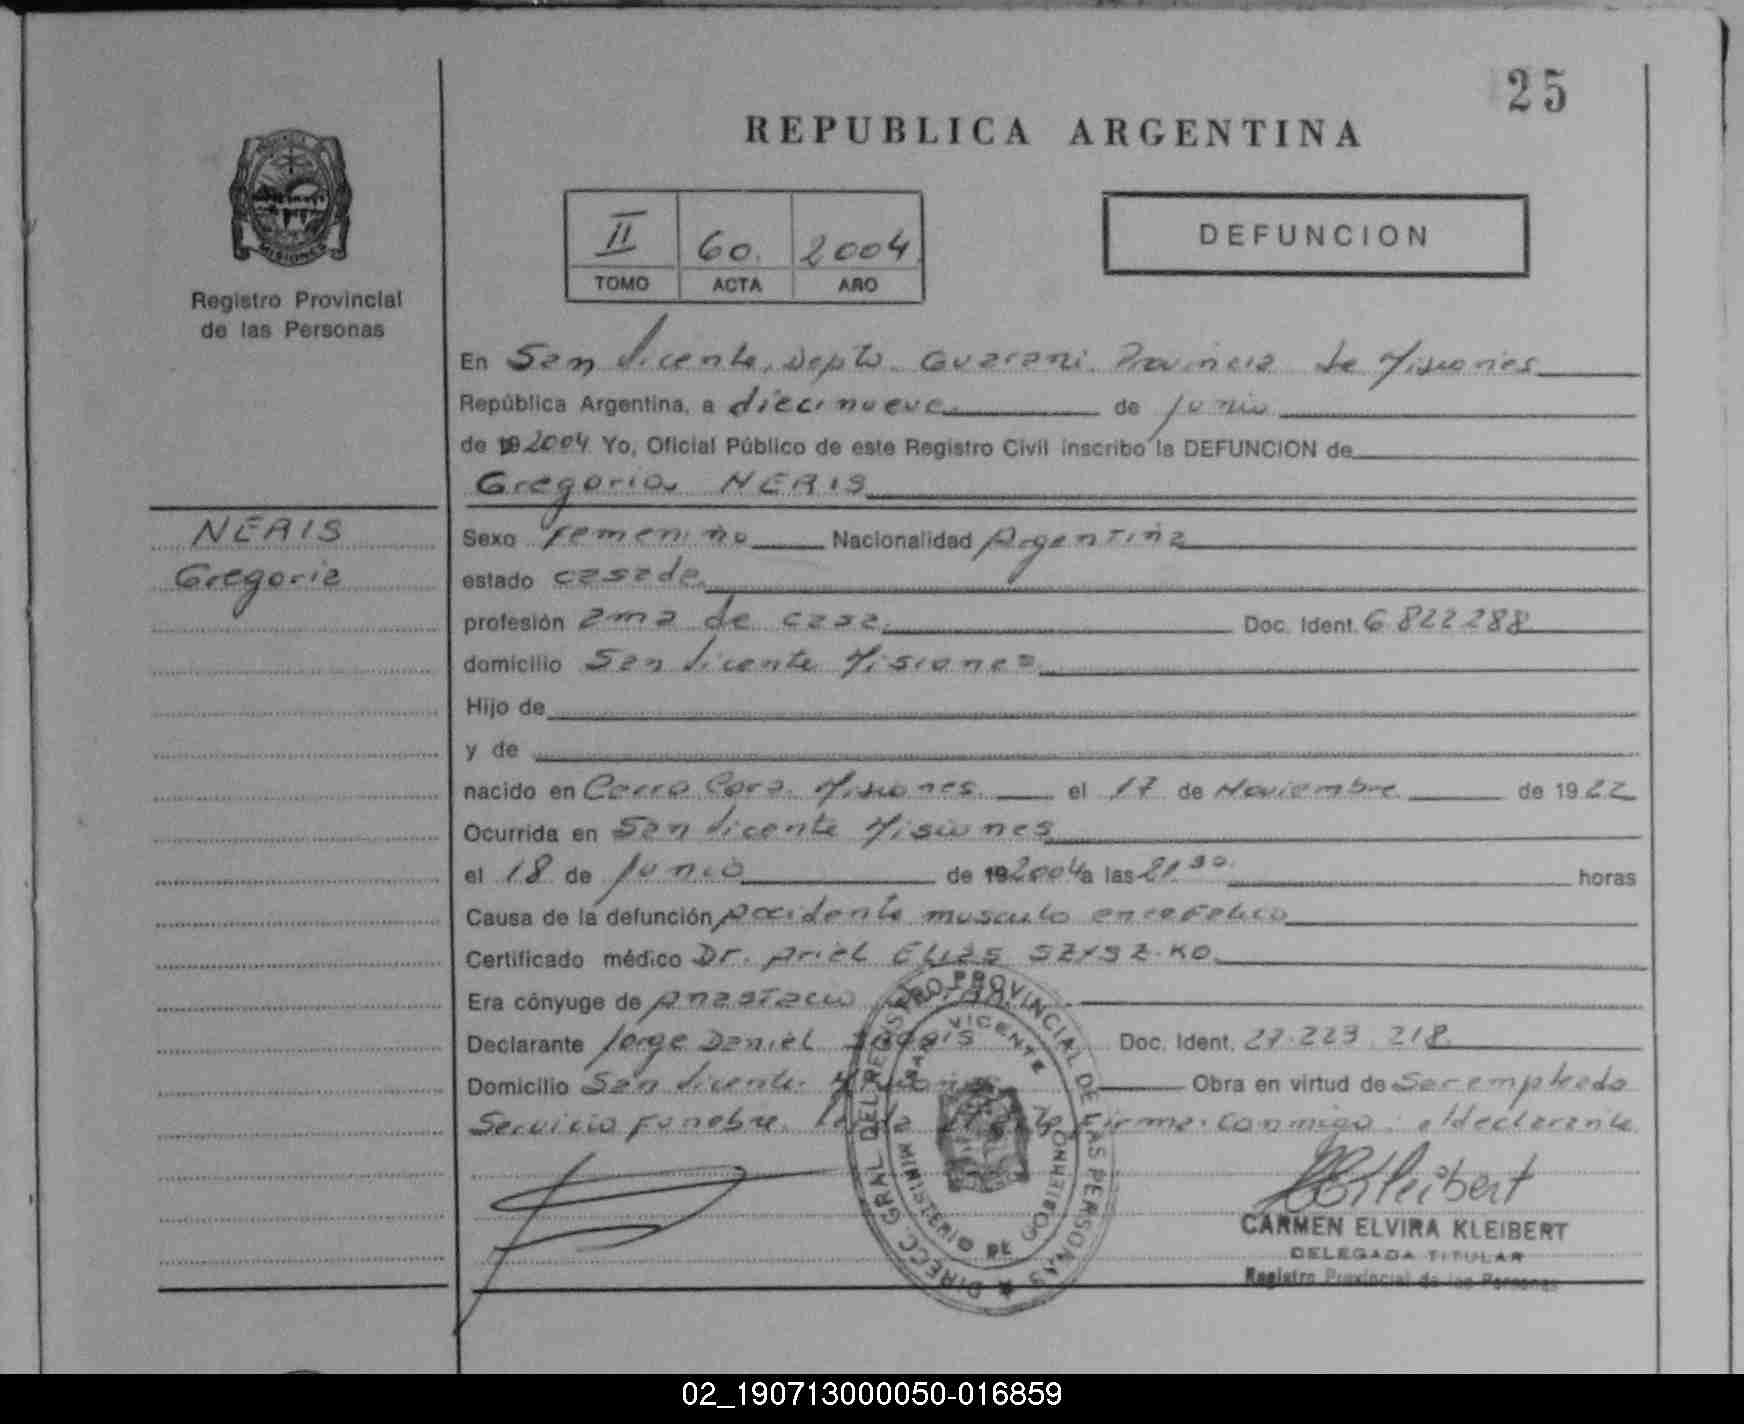 25
REPUBLICA ARGENTINA
MISIONES
Registro Provincial
de las Personas
II 60. 2004
TOMO ACTA AÑO
DEFUNCION
En San Vicente, Depto. Guarani. Provincia de Misiones
República Argentina, a diecinueve de junio
de 19 2004 Yo, Oficial Público de este Registro Civil inscribo la DEFUNCION de
Gregoria NERIS
NERIS
Gregoria
Sexo femenino Nacionalidad Argentina
estado casada
profesión ama de casa. Doc. Ident. 6.822.288
domicilio San Vicente Misiones
Hijo de
y de
nacido en Cerro Cora. Misiones. el 17 de Noviembre de 1922
Ocurrida en San Vicente Misiones
el 18 de junio de 19 2004 a las 21.30. horas
Causa de la defunción Accidente musculo encefalico
Certificado médico Dr. Ariel Elias
Era cónyuge de Anastacio
Declarante Jorge Daniel Doc. Ident. 27.223.218
Domicilio San Vicente. Misiones Obra en virtud de Ser empleado
Servicio funebre. Leida firma conmigo: el declarante
DIRECC. GRAL. DEL REGISTRO PROVINCIAL DE LAS PERSONAS
SAN VICENTE
MINISTERIO DE GOBIERNO
Kleibert
CARMEN ELVIRA KLEIBERT
DELEGADA TITULAR
Registro Provincial de las Personas
02_190713000050-016859